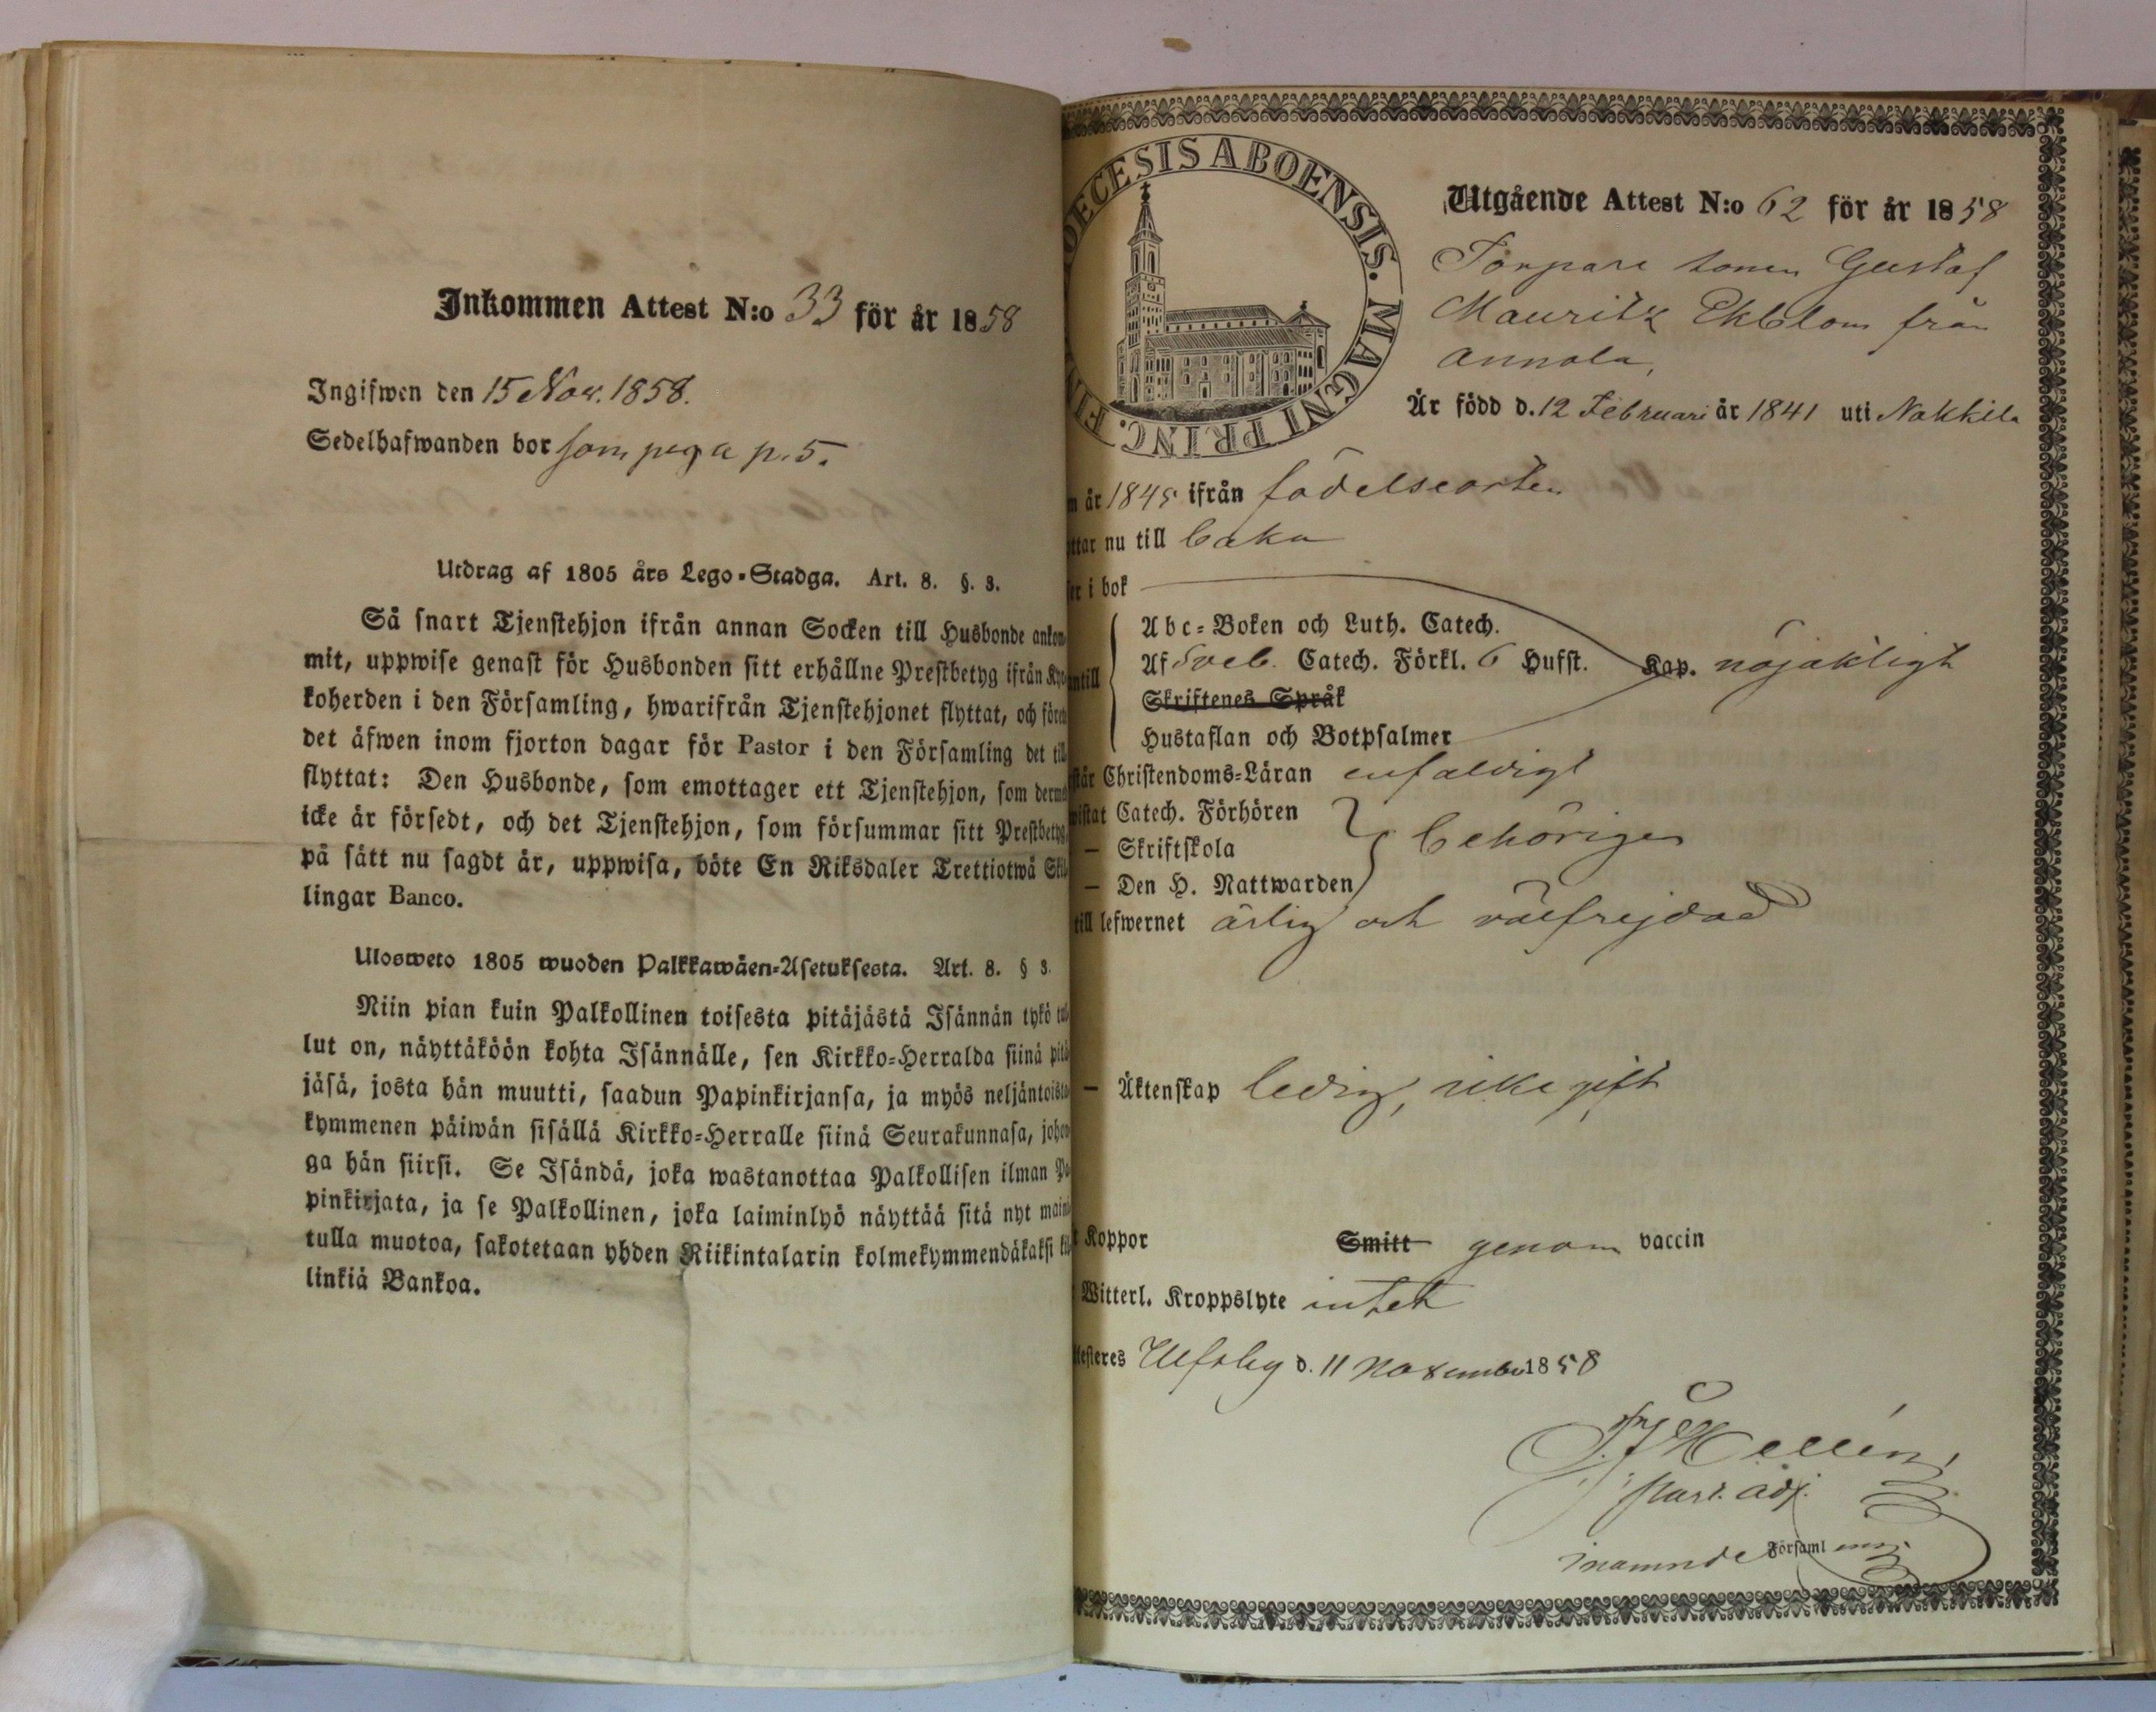 Inkommen Attest N:o 33 för år 1858
Ingifwen den 15 Nov. 1858.
Sedelhafwanden bor som piga p. 5.
Utdrag af 1805 års Lego-Stadga. Art. 8. §. 3.
Så snart Tjenstehjon ifrån annan Socken till Husbonde ankom
mit, uppwise genast för Husbonden sitt erhållne Prestbetyg ifrån Kyr
koherden i den Församling, hwarifrån Tjenstehjonet flyttat, och förete
det äfwen inom fjorton dagar för Pastor i den Församling det till
flyttat: Den Husbonde, som emottager ett Tjenstehjon, som dermed
icke är försedt, och det Tjenstehjon, som försummar sitt Prestbetyg,
på sätt nu sagdt är, uppwisa, böte En Riksdaler Trettiotwå Skil
lingar Banco.
Ulosweto 1805 wuoden Palkkawäen-Asetuksesta. Art. 8. § 3.
Niin pian kuin Palkollinen toisesta pitäjästä Isännän tykö tul
lut on, näyttäköön kohta Isännälle, sen Kirkko-Herralda siinä pitä
jäsä, josta hän muutti, saadun Papinkirjansa, ja myös neljäntoista
kymmenen päiwän sisällä Kirkko-Herralle siinä Seurakunnasa, johon
ga hän siirsi. Se Isändä, joka wastanottaa Palkollisen ilman Pa
pinkirjata, ja se Palkollinen, joka laiminlyö näyttää sitä nyt maini
tulla muotoa, sakotetaan yhden Riikintalarin kolmekymmendäkaksi kil
linkiä Bankoa.
OECESIS ABOENSIS. MAGNI PRINC. FIN
Utgående Attest N:o 62 för år 1858
Torpare sonen Gustaf
Mauritz Ekblom från
Annola,
Är född d. 12 Februari år 1841 uti Nakkila
m år 1845 ifrån födelseorten
ttar nu till baka
ser i bok
Abc-Boken och Luth. Catech.
ntill Af Sveb. Catech. Förkl. 6 Hufst. Kap. nöjaktigt
Skriftenes Språk
Hustaflan och Botpsalmer
står Christendoms-Läran enfaldigt
wistat Catech. Förhören
— Skriftskola behörigen
— Den H. Nattwarden
till lefwernet ärlig och välfrejdad
— Äktenskap ledig, icke gift
t Koppor Smitt genom vaccin
Witterl. Kroppslyte intet
testeres Ulfsby d. 11 November 1858
Hellén,
past. adj.
i nämnde Församl ing.